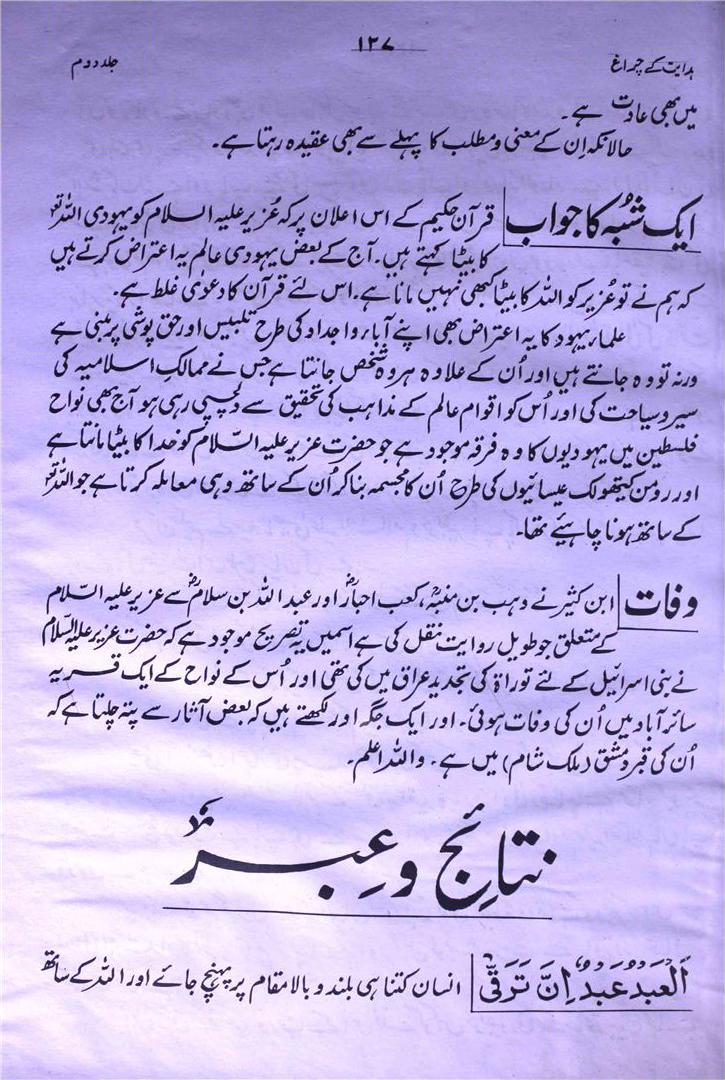 ۱۳۷
ہدایت کے چراغ
جلد دوم
میں بھی عادت ہے۔
حالانکہ اِن کے معنی و مطلب کا پہلے سے بھی عقیدہ رہتا ہے۔
ایک شُبہ کا جواب
قرآن حکیم کے اس اعلان پر کہ عُزیر علیہ السلام کو یہودی اللہ تعالیٰ
کا بیٹا کہتے ہیں۔ آج کے بعض یہودی عالم یہ اعتراض کرتے ہیں
کہ ہم نے تو عُزیر کو اللہ کا بیٹا کبھی نہیں مانا ہے۔ اس لئے قرآن کا دعویٰ غلط ہے۔
علمار یہود کا یہ اعتراض بھی اپنے آبار و اجداد کی طرح تلبیس اور حق پوشی پر مبنی ہے
ورنہ تو وہ جانتے ہیں اور اُن کے علاوہ ہر وہ شخص جانتا ہے جس نے ممالکِ اسلامیہ کی
سیر و سیاحت کی اور اُس کو اقوام عالم کے مذاہب کی تحقیق سے دلچسپی رہی ہو آج بھی نواح
فلسطین میں یہودیوں کا وہ فرقہ موجود ہے جو حضرت عزیر علیہ السّلام کو خدا کا بیٹا مانتا ہے
اور رومن کیتھولک عیسائیوں کی طرح اُن کا مجسمہ بنا کر اُن کے ساتھ وہی معاملہ کرتا ہے جو اللہ تعالیٰ
کے ساتھ ہونا چاہیئے تھا۔
وفات
ابن کثیر نے وہب بن منبہؒ، کعب احبارؒ اور عبداللہ بن سلامؓ سے عزیر علیہ السّلام
کے متعلق جو طویل روایت نقل کی ہے اسمیں یہ تصریح موجود ہے کہ حضرت عزیر علیہ السّلام
نے بنی اسرائیل کے لئے توراۃ کی تجدید عراق میں کی تھی اور اُس کے نواح کے ایک قریہ
سائر آباد میں اُن کی وفات ہوئی۔ اور ایک جگہ اور لکھتے ہیں کہ بعض آثار سے پتہ چلتا ہے کہ
اُن کی قبر دمشق (ملک شام) میں ہے۔ واللہ اعلم۔
نتائج و عِبر
اَلعبد عبد اِنَّ تَرَقّٰی
انسان کتنا ہی بلند و بالا مقام پر پہنچ جائے اور اللہ کے ساتھ